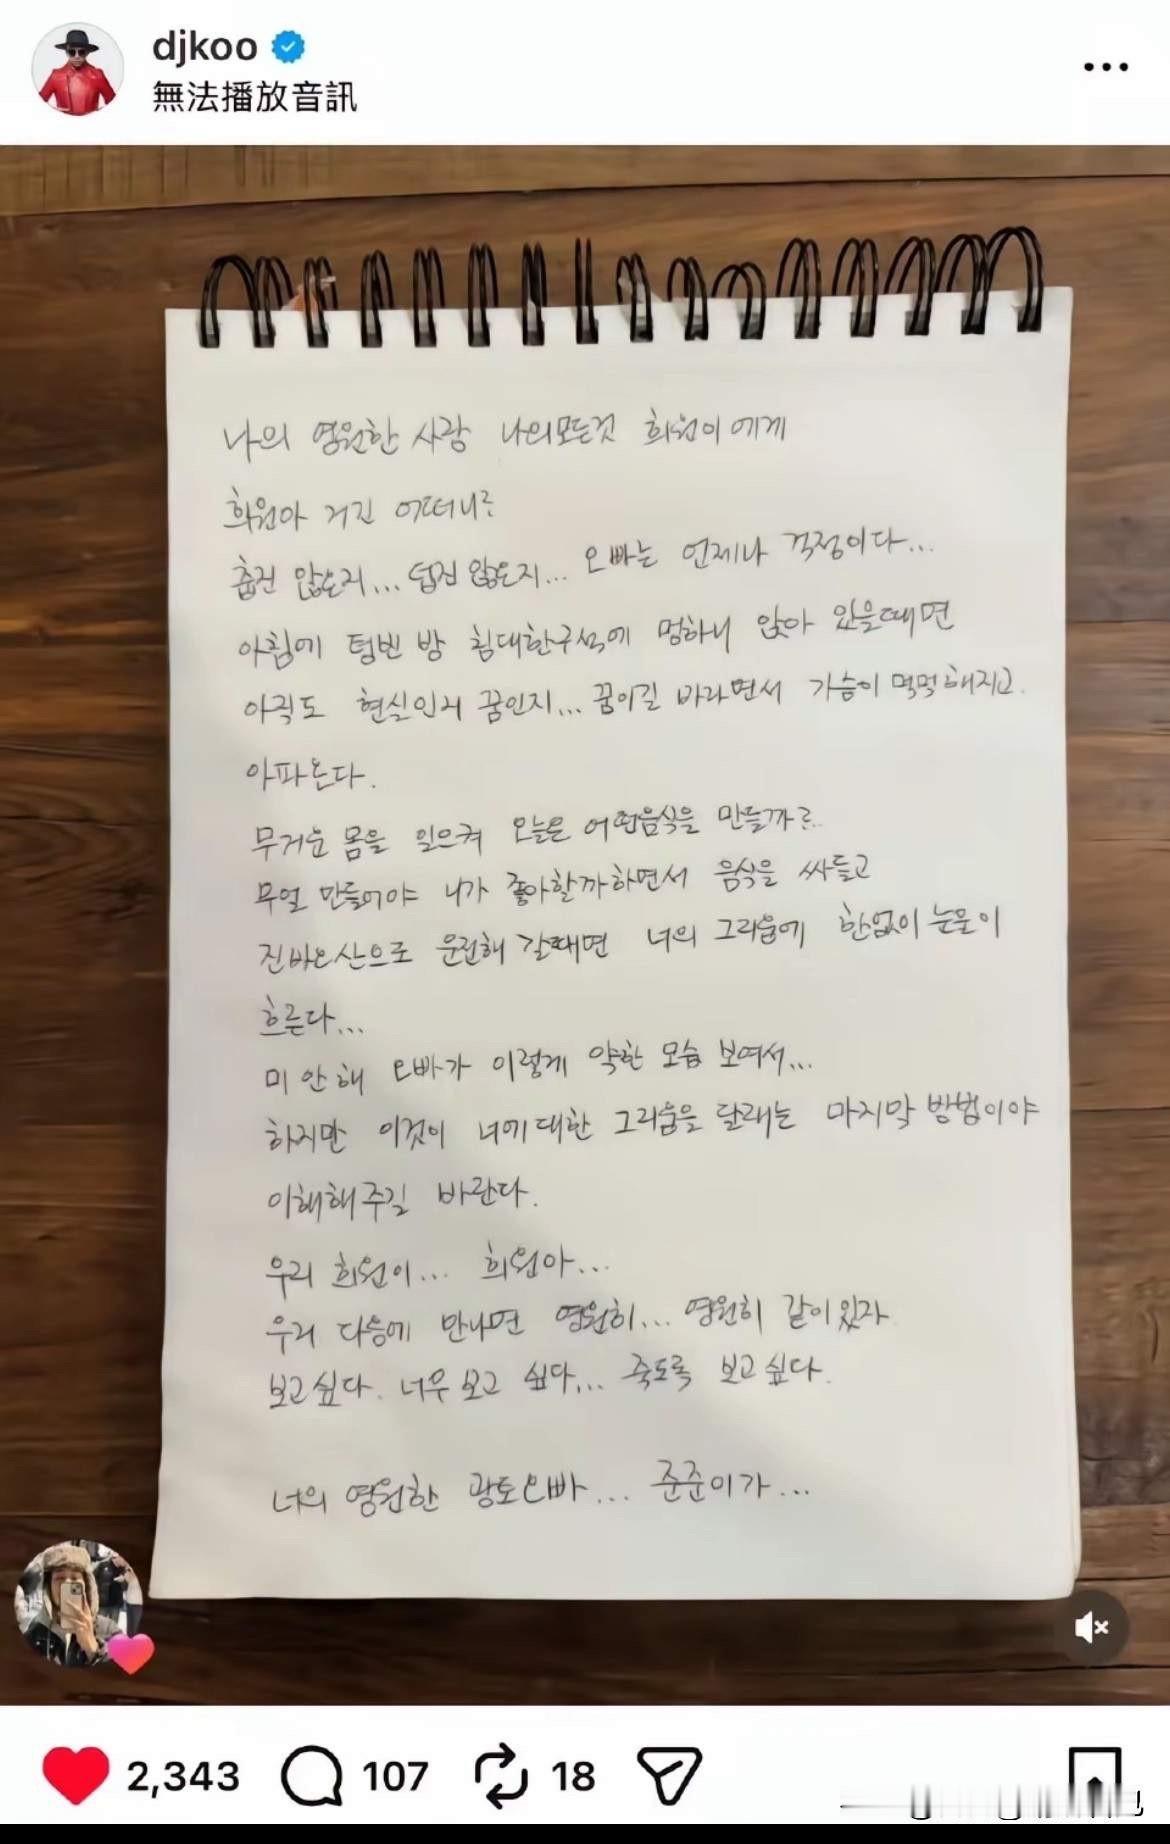 djkoo
無法播放音訊
나의 영원한 사랑 나의모든것 희원이에게
희원아 거긴 어떠니?
춥진 않은지... 덥진 않은지... 오빠는 언제나 걱정이다...
아침에 텅빈 방 침대한구석에 멍하니 앉아 있을때면
아직도 현실인지 꿈인지... 꿈이길 바라면서 가슴이 먹먹해지고
아파온다.
무거운 몸을 일으켜 오늘은 어떤음식을 만들까?
무얼 만들어야 니가 좋아할까하면서 음식을 싸들고
진바오산으로 운전해 갈때면 너의 그리움에 한없이 눈물이
흐른다...
미안해 오빠가 이렇게 약한 모습 보여서...
하지만 이것이 너에대한 그리움을 달래는 마지막 방법이야
이해해주길 바란다.
우리 희원이... 희원아...
우리 다음에 만나면 영원히... 영원히 같이있자
보고싶다. 너무 보고 싶다... 죽도록 보고싶다.
너의 영원한 광토오빠... 준준이가...
2,343 107 18